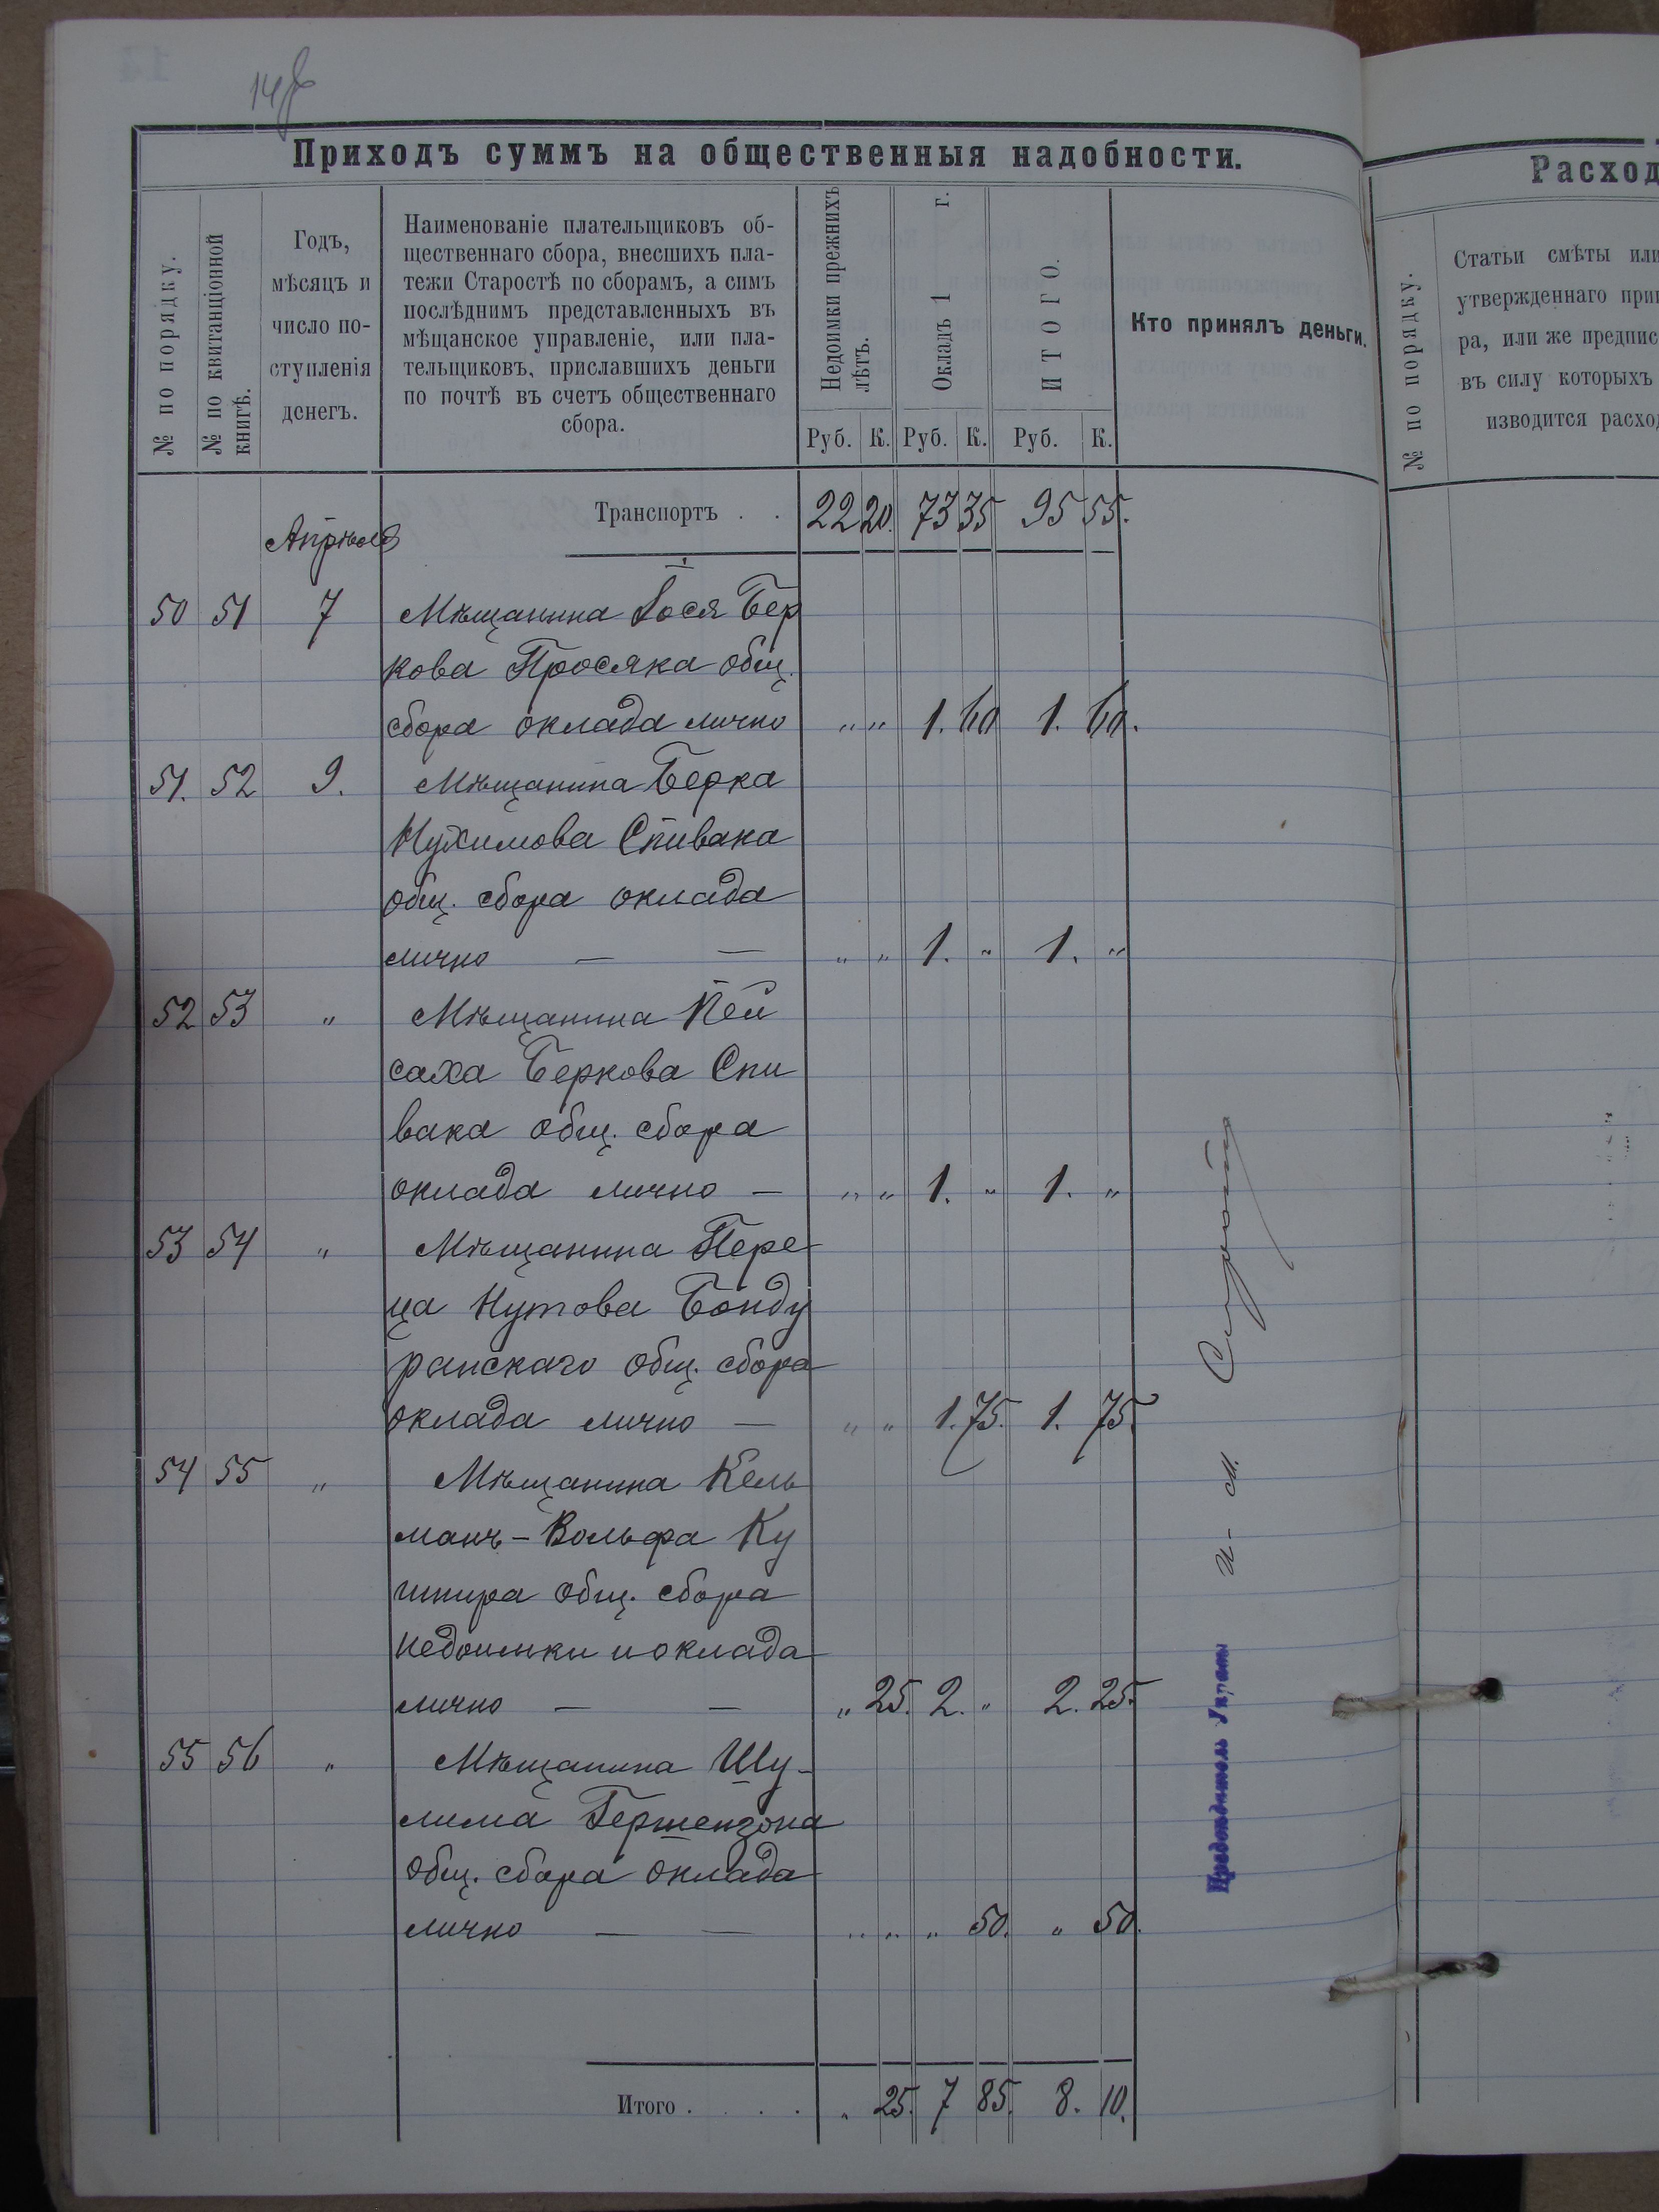 14
Приходъ суммъ на общественныя надобности.
№ по порядку.
№ по квитанціонной
книгѣ.
Годъ,
мѣсяцъ и
число по-
ступленія
денегъ.
Наименованіе плательщиковъ об-
щественнаго сбора, внесшихъ пла-
тежи Старостѣ по сборамъ, а симъ
послѣднимъ представленныхъ въ
мѣщанское управленіе, или пла-
тельщиковъ, приславшихъ деньги
по почтѣ въ счетъ общественнаго
сбора.
Недоимки прежнихъ
лѣтъ.
Окладъ 1 г.
ИТОГО.
Кто принялъ деньги.
Руб. К. Руб. К. Руб. К.
Транспортъ . . 22 20. 73 35 95 55.
Апрѣль
50 51 7 Мѣщанина Іося Бер
кова Просяка общ.
сбора оклада лично „ „ 1. 60 1. 60.
51. 52 9. Мѣщанина Берка
Нухимова Спивака
общ. сбора оклада
лично — — „ „ 1. „ 1. „
52 53 „ Мѣщанина Пей
саха Беркова Спи
вака общ. сбора
оклада лично — „ „ 1. „ 1. „
53 54 „ Мѣщанина Пере
ца Нутова Бонду
ранскаго общ. сбора
оклада лично — „ „ 1. 75. 1. 75.
54 55 „ Мѣщанина Кель
манъ-Вольфа Ку
шнира общ. сбора
недоимки и оклада
лично — — „ 25. 2. „ 2. 25.
55 56 „ Мѣщанина Шу-
лима Гершензона
общ. сбора оклада
лично — — „ „ „ 50. „ 50.
Итого . . . . „ 25. 7 85. 8. 10.
Предсѣдатель Управы
и. м.
Расход
№ по порядку.
Статьи смѣты или
утвержденнаго при
ра, или же предпис
въ силу которыхъ
изводится расхо